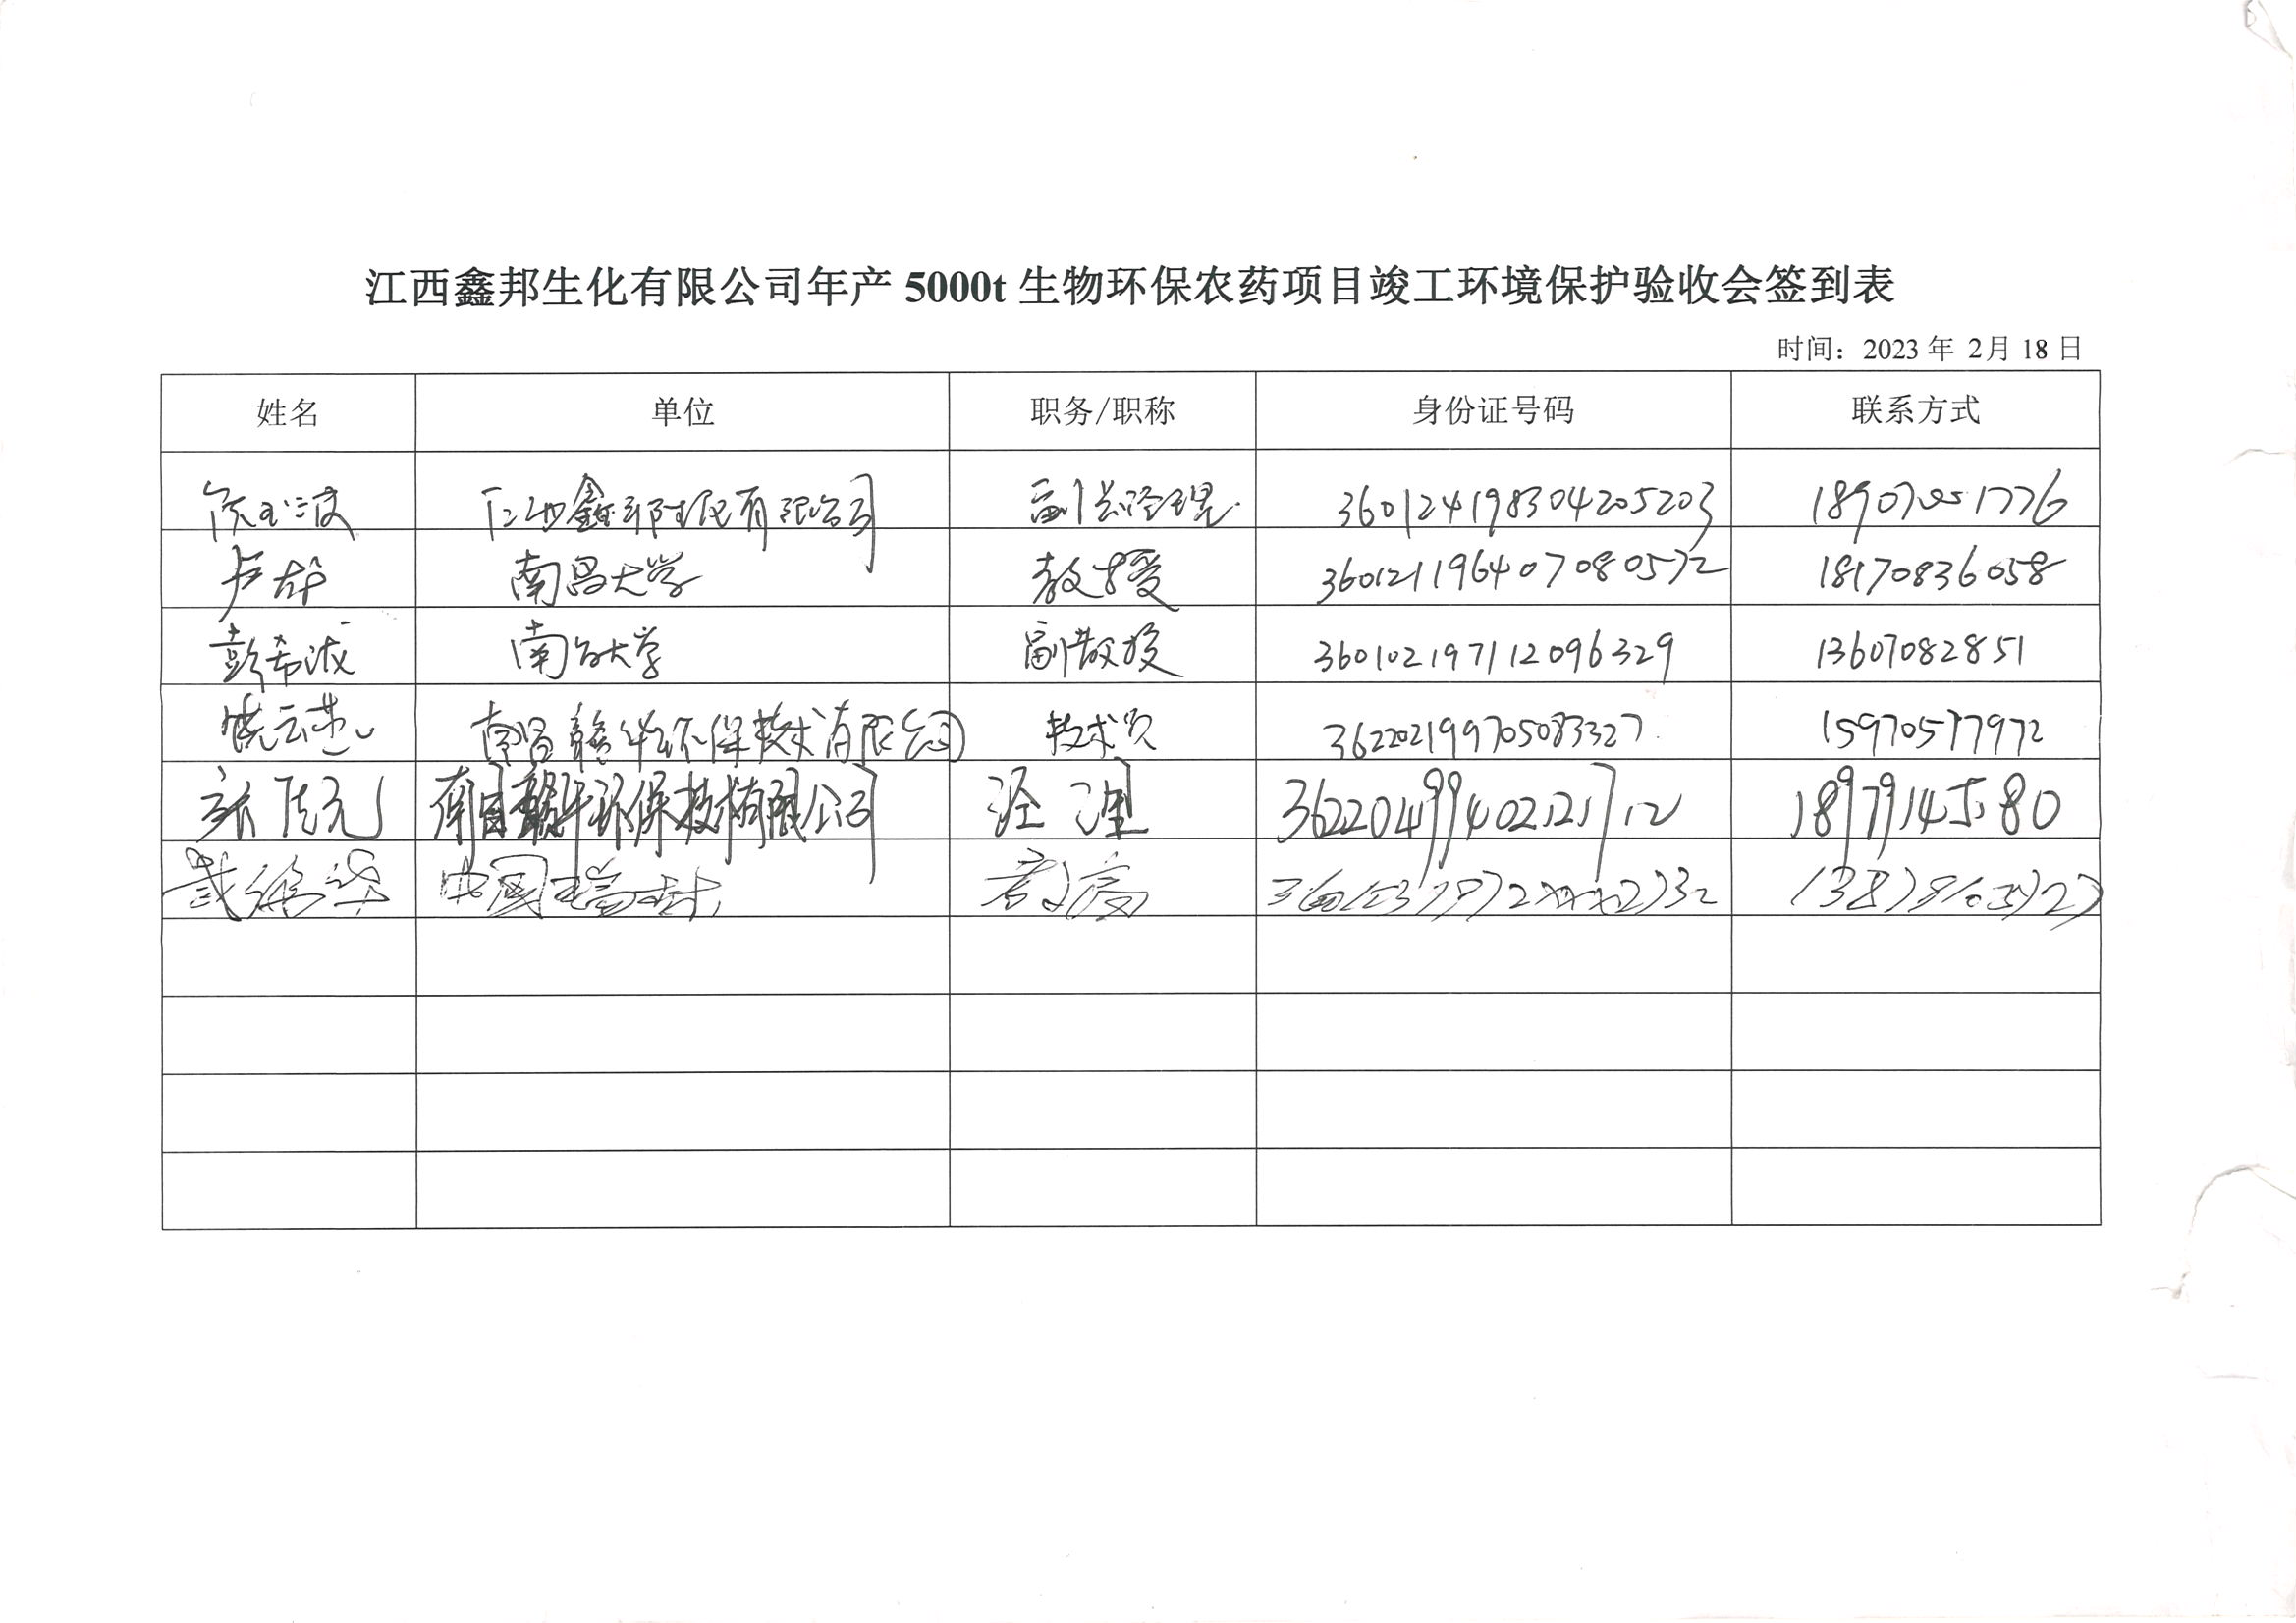 江西鑫邦生化有限公司年产 5000t 生物环保农药项目竣工环境保护验收会签到表
时间：2023 年 2月 18 日
姓名 单位 职务/职称 身份证号码 联系方式
江西鑫邦生化有限公司 副总经理 360124198304205203 18907001776
南昌大学 教授 360121196407080572 18170836058
彭希 南昌大学 副教授 360102197112096329 13607082851
饶云 南昌赣华环保技术有限公司 技术员 362202199705083327 15970577972
南昌赣华环保技术有限公司 经理
中国瑞林